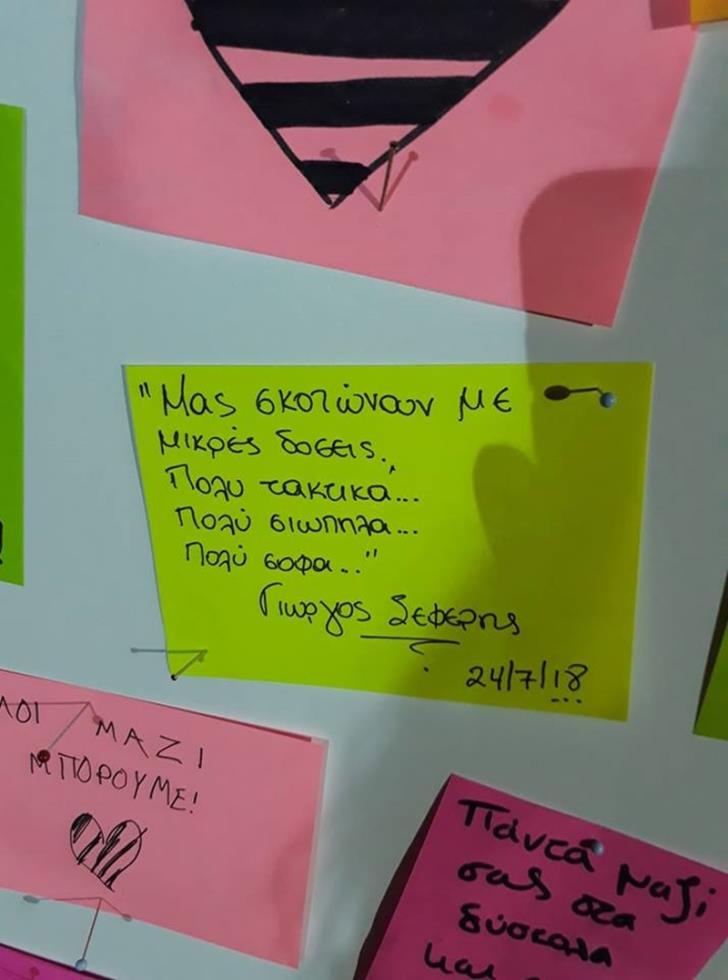 "Μας σκοτώνουν με
μικρές δοσεις.,
Πολυ τακτικά...
Πολύ σιωπηλα...
Πολύ σοφα..."
Γιωργος Σεφερης
24/7/18
...ΛΟΙ ΜΑΖΙ
ΜΠΟΡΟΥΜΕ!
Πάντα μαζί
σας στα
δύσκολα
και